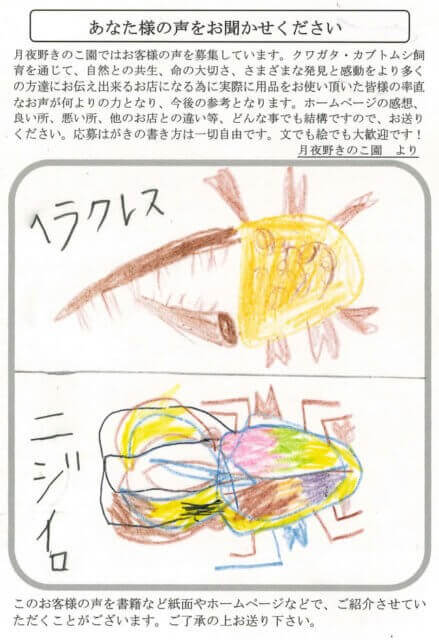 あなた様の声をお聞かせください
月夜野きのこ園ではお客様の声を募集しています。クワガタ・カブトムシ飼
育を通じて、自然との共生、命の大切さ、さまざまな発見と感動をより多く
の方達にお伝え出来るお店になる為に実際に用品をお使い頂いた皆様の率直
なお声が何よりの力となり、今後の参考となります。ホームページの感想、
良い所、悪い所、他のお店との違い等、どんな事でも結構ですので、お送り
ください。応募はがきの書き方は一切自由です。文でも絵でも大歓迎です！
月夜野きのこ園　より
ヘラクレス
ニジイロ
このお客様の声を書籍など紙面やホームページなどで、ご紹介させてい
ただくことがございます。ご了承の上お送り下さい。